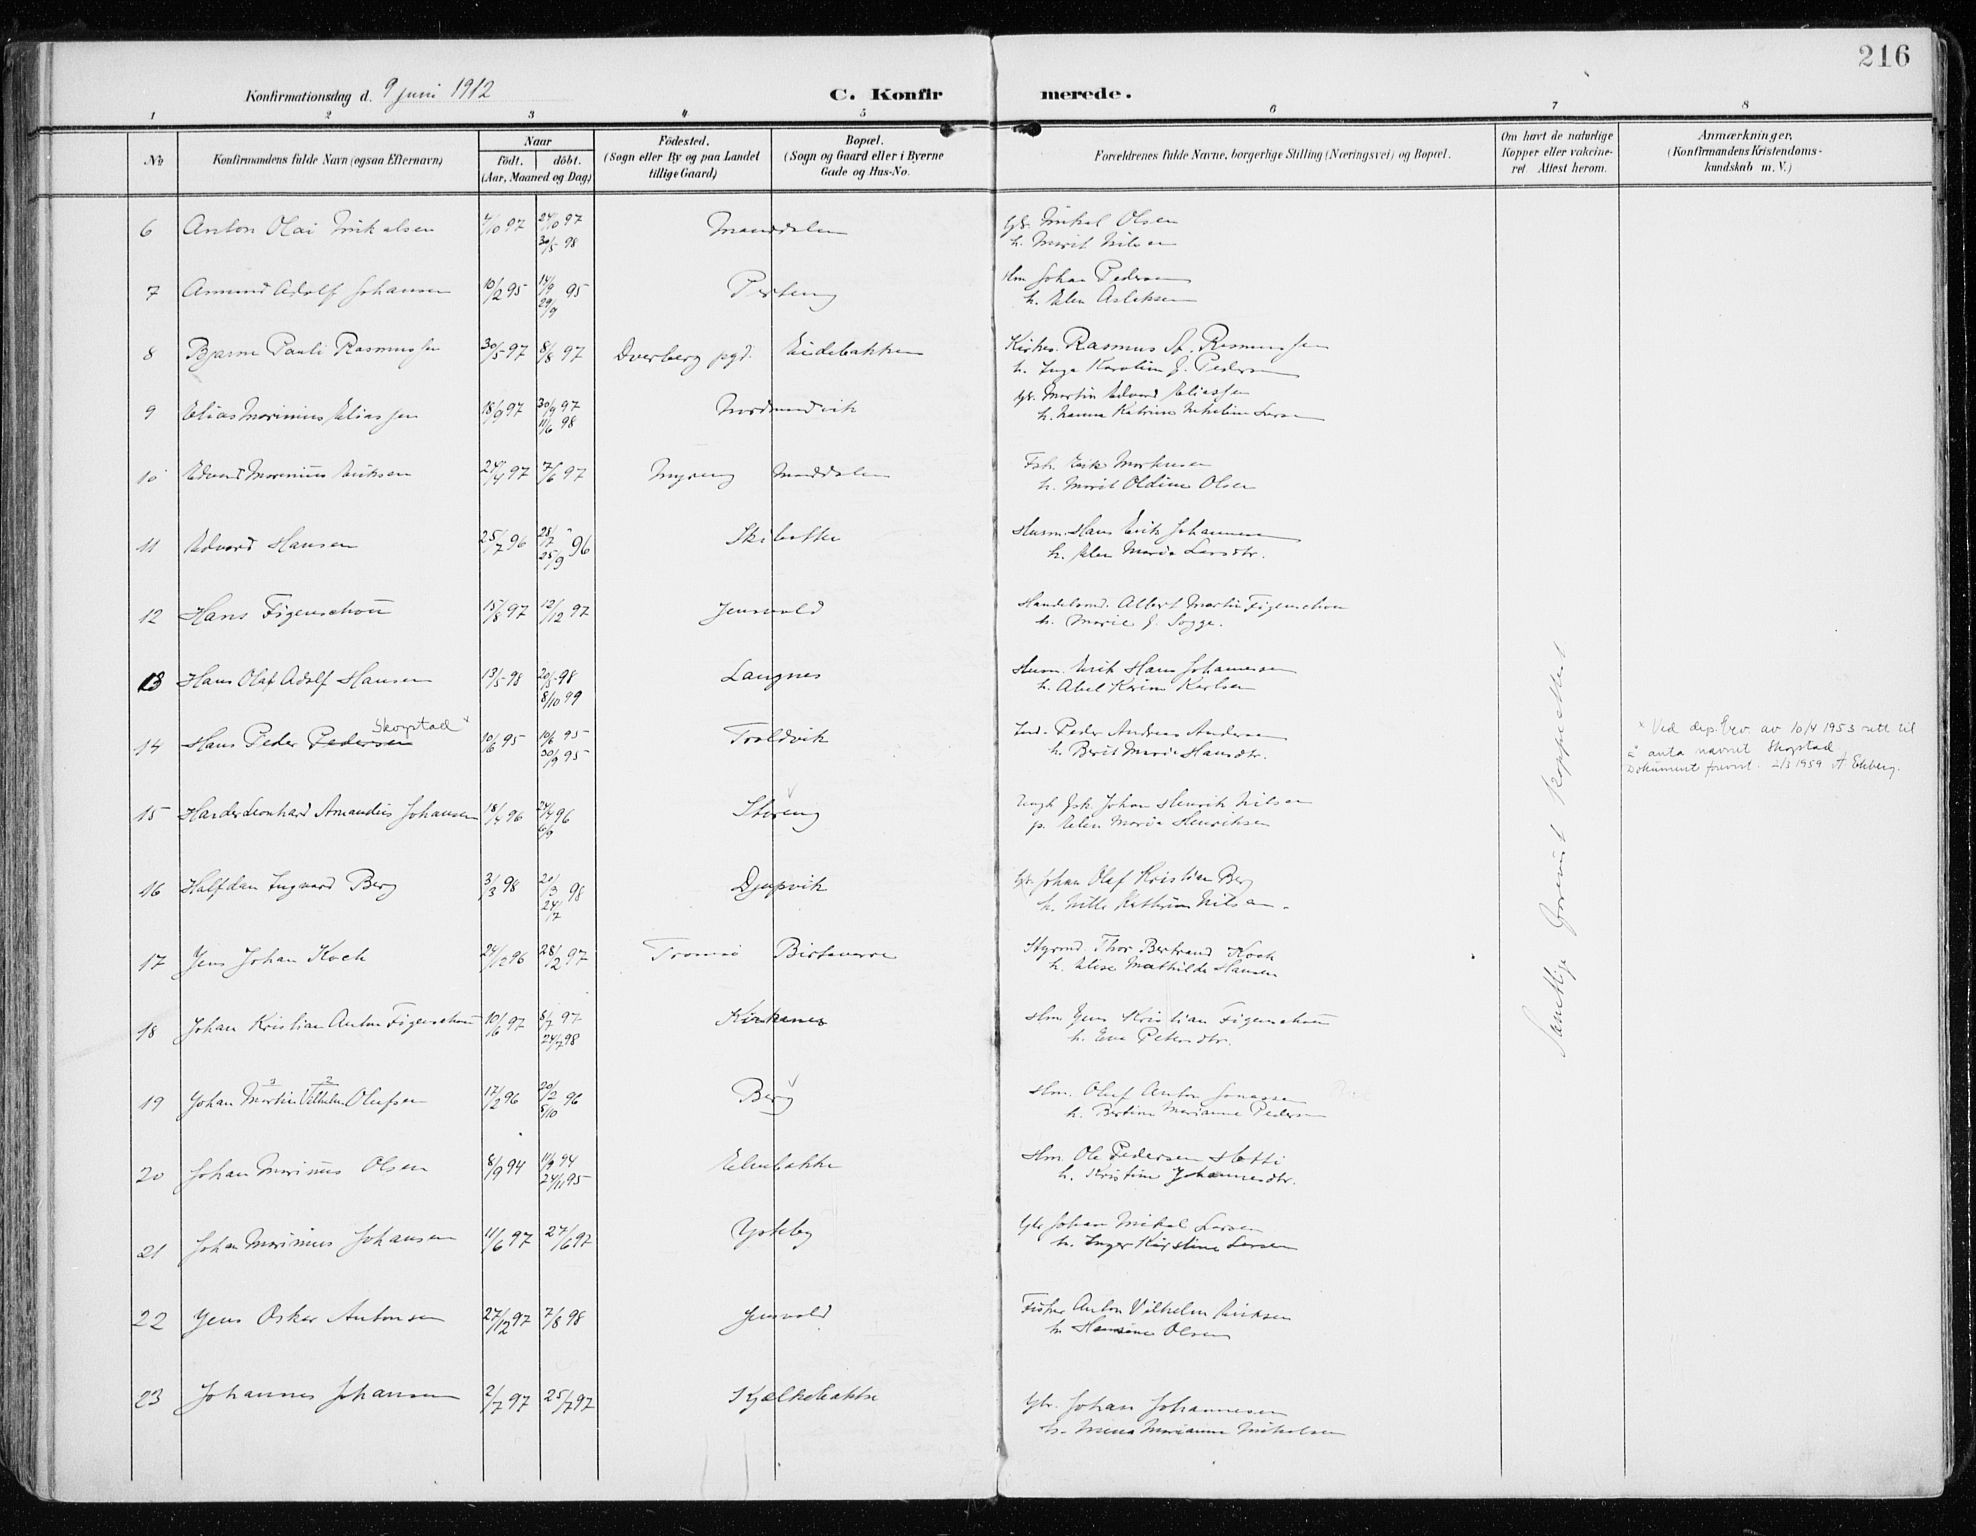 216
Konfirmationsdag d. 9 juni 1912
C. Konfirmerede.
1 2 3 4 5 6 7 8
No
Konfirmandens fulde Navn (ogsaa Efternavn)
Naar
født. døbt.
(Aar, Maaned og Dag)
Fødested.
(Sogn eller By og paa Landet
tillige Gaard)
Bopæl.
(Sogn og Gaard eller i Byerne
Gade og Hus-No.
Forældrenes fulde Navne, borgerlige Stilling (Næringsvei) og Bopæl.
Om havt de naturlige
Kopper eller vakcine-
ret. Attest herom.
Anmærkninger.
(Konfirmandens Kristendoms-
kundskab m. V.)
6 Anton Olai Mikalsen 4/10 97 24/10 97 Manddalen Gbr. Mikal Olsen
30/5 98 h. Marit Nilsen
7 Amund Adolf Johansen 10/2 95 14/9 95 Perteng Hm Johan Pedersen
29/9 h. Elen Aslaksen
8 Bjarne Pauli Rasmussen 30/5 97 8/8 97 Dverberg pgd. Eidebakken Kirkes. Rasmus St. Rasmussen
h. Inga Karoline J. Pedersen
9 Elias Marinius Eliassen 18/9 97 30/9 97 Nordmandvik Gbr. Martin Edvard Eliassen
11/6 98 h. Hanna Katrine Larsen
10 Edvard Marinius Eriksen 24/4 97 7/6 97 Myreng Manddalen Fisk. Erik Markusen
h. Marit Oldine Olsen
11 Edvard Hansen 25/7 96 28/7 96 Skibotten Husm. Hans Erik Johannesen
25/9 h. Elen Marie Larsdtr.
12 Hans Figenschou 15/8 97 12/12 97 Jensvold Handelsmd. Albert Martin Figenschou
h. Marie J. Sogge.
13 Hans Olaf Adolf Hansen 13/5 98 20/5 98 Langnes Husm Erik Hans Johannesen
8/10 99 h. Abel Karine Karlsen
14 Hans Peder Pedersen Skogstad x 10/6 95 10/6 95 Troldvik Ind. Peder Andreas Andersen
30/9 95 h. Berit Marie Hansdtr.
x Ved dep. bev. av 10/4 1953 rett til
å anta navnet Skogstad
Dokument forevist. 2/3 1959 A Ekberg.
15 Harder Leonhard Amandus Johansen 18/4 96 24/4 96 Storeng Ungk. Johan Henrik Nilsen
6/9 p. Elen Marie Henriksen
16 Halfdan Ingvard Berg 3/3 98 20/3 98 Djupvik Gbr. Johan Olaf Kristian Berg
24/7 h. Kathrine Nilsen
17 Jens Johan Koch 24/10 96 28/2 97 Tromsø Birtavarre Styrmd. Thor Bertrand Koch
h. Elise Mathilde Hansen
18 Johan Kristian Anton Figenschou 10/6 97 8/7 97 Kirkenes Hm. Jens Kristian Figenschou
24/7 98 h. Eva Petersdtr.
19 Johan Martin Vilhelm Olufsen 17/2 96 20/2 96 Berg Hm. Oluf Anton Jonassen
8/10 h. Bertine Marianne Pedersen
20 Johan Marinus Olsen 8/9 94 11/9 94 Elvebakke Hm. Ole Pedersen Hetti
24/11 95 h. Kristine Johannesdtr.
21 Johan Marinius Johansen 11/6 97 27/6 97 Yttreby Gbr Johan Mikal Larsen
h. Inger Kirstine Larsen
22 Jens Oskar Antonsen 27/12 97 7/8 98 Jensvold Fisker Anton Vilhelm Eriksen
h. Hansine Olsen
23 Johannes Johansen 2/7 97 25/7 97 Kjelkebakke Gbr. Johan Johannesen
h. Nina Marianne Mikalsen
Samtlige forevist Koppeattest